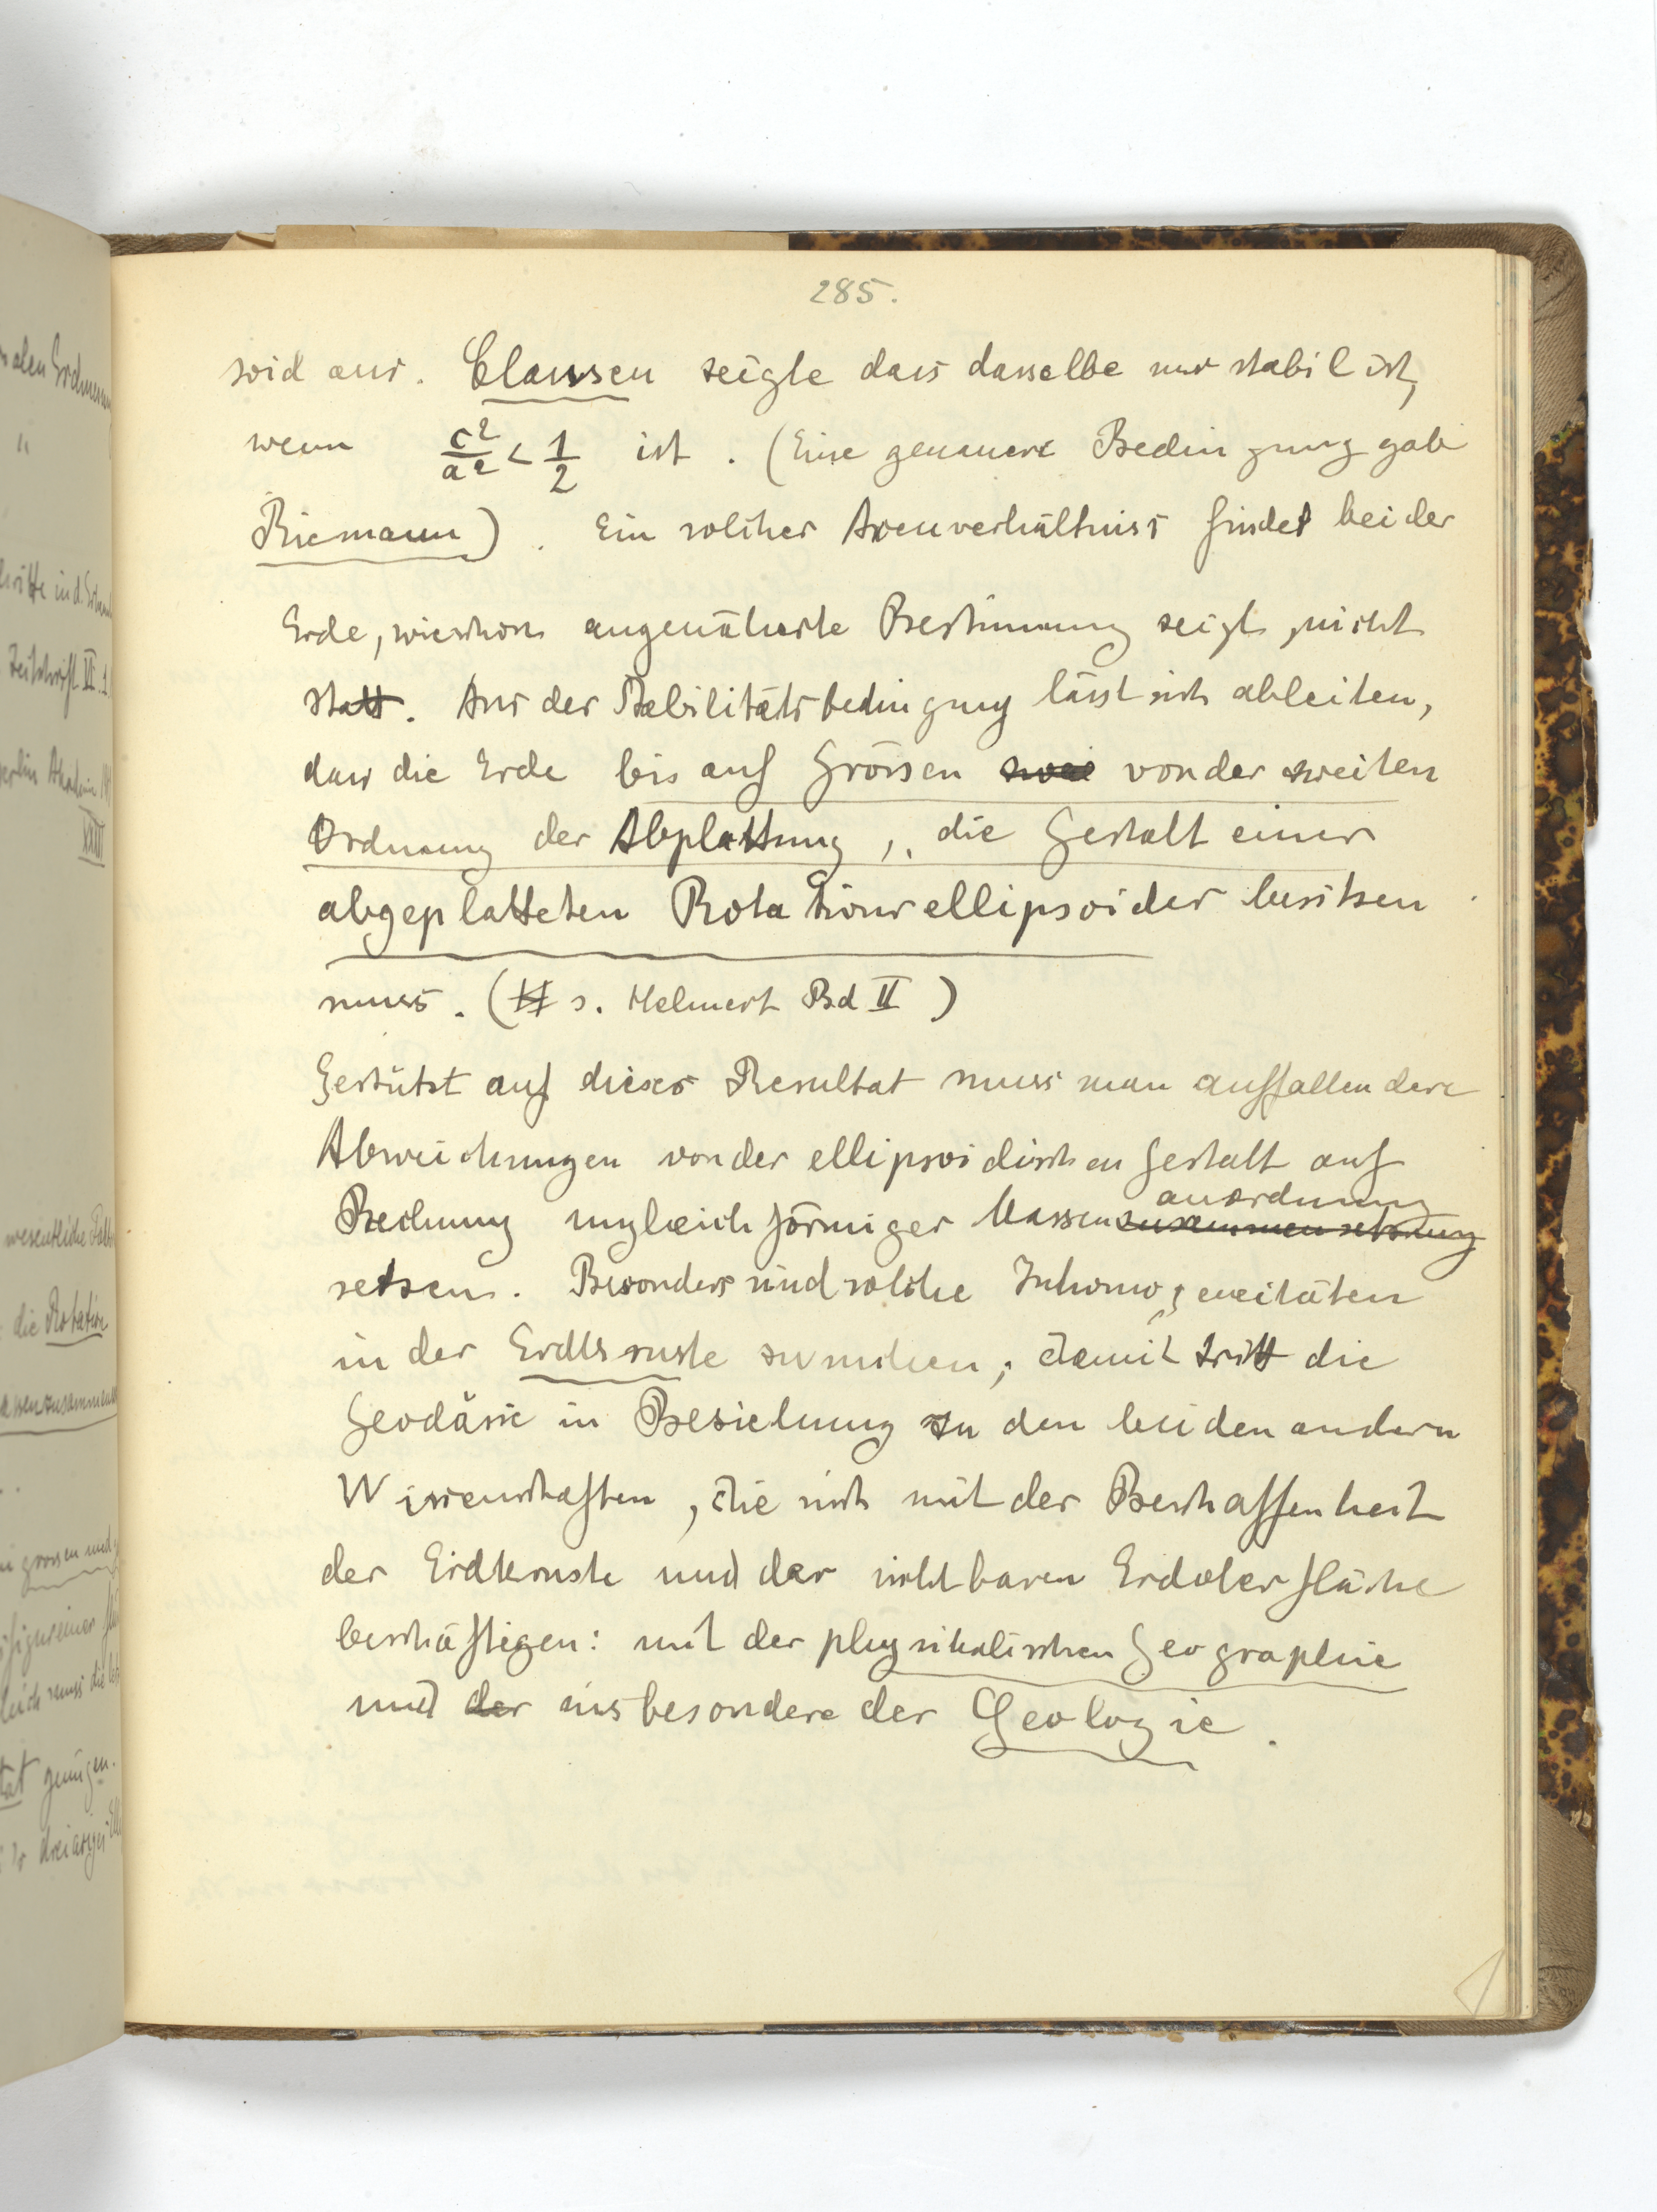 285.
soid aus. Clausen zeigte dass dasselbe nur stabil ist,
wenn c²/a² < 1/2 ist. (Eine genauere Bedingung gab
Riemann). Ein solches Axenverhältniss findet bei der
Erde, wie schon angenäherte Bestimmung zeigt, nicht
statt. Aus der Stabilitätsbedingung lässt sich ableiten,
dass die Erde bis auf Grössen zwei von der zweiten
Ordnung der Abplattung, die Gestalt eines
abgeplatteten Rotationsellipsoides besitzen
muss. (H s. Helmert Bd II)
Gestützt auf dieses Resultat muss man auffallendere
Abweichungen von der ellipsoidischen Gestalt auf
anordnung
Rechnung ungleichförmiger Massenzusammensetzung
setzen. Besonders sind solche Inhomogeneitäten
in der Erdkruste zu suchen; damit tritt die
Geodäsie in Beziehung zu den beiden andern
Wissenschaften, die sich mit der Beschaffenheit
der Erdkruste und der sichtbaren Erdoberfläche
beschäftigen: mit der physikalischen Geographie
und der insbesondere der Geologie.
die Rotation